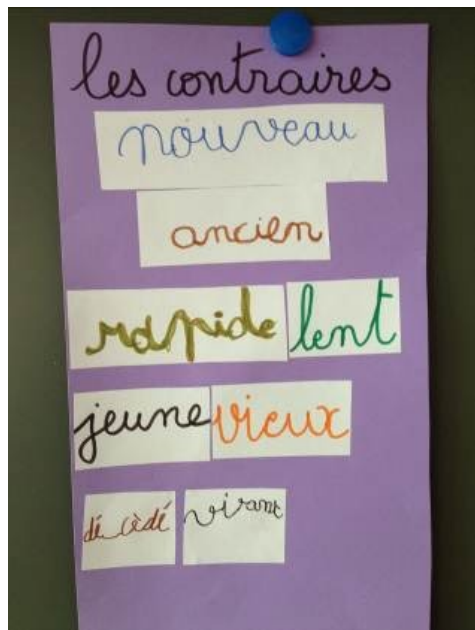 les contraires
nouveau
ancien
rapide lent
jeune vieux
dé cèdé vivant